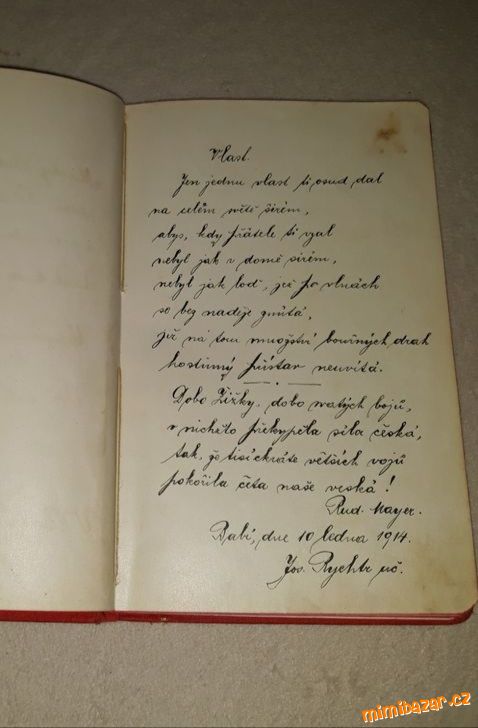 Vlast.
Jen jednu vlast ti osud dal
na celém světě širém,
abys, kdy přátele ti vzal
nebyl jak v domě sirém,
nebyl jak loď, jež po vlnách
se bez naděje zmítá,
již na tom množství bouřných drah
hostinný přístav neuvítá.
Dobo Žižky, dobo svatých bojů,
v nichžto překypěla síla česká,
tak, že tisíckráte větších vojů
pokořila četa naše veská!
Rud. Mayer.
Rabí, dne 10 ledna 1914.
Jos. Rychtr uč.
mimibazar.cz